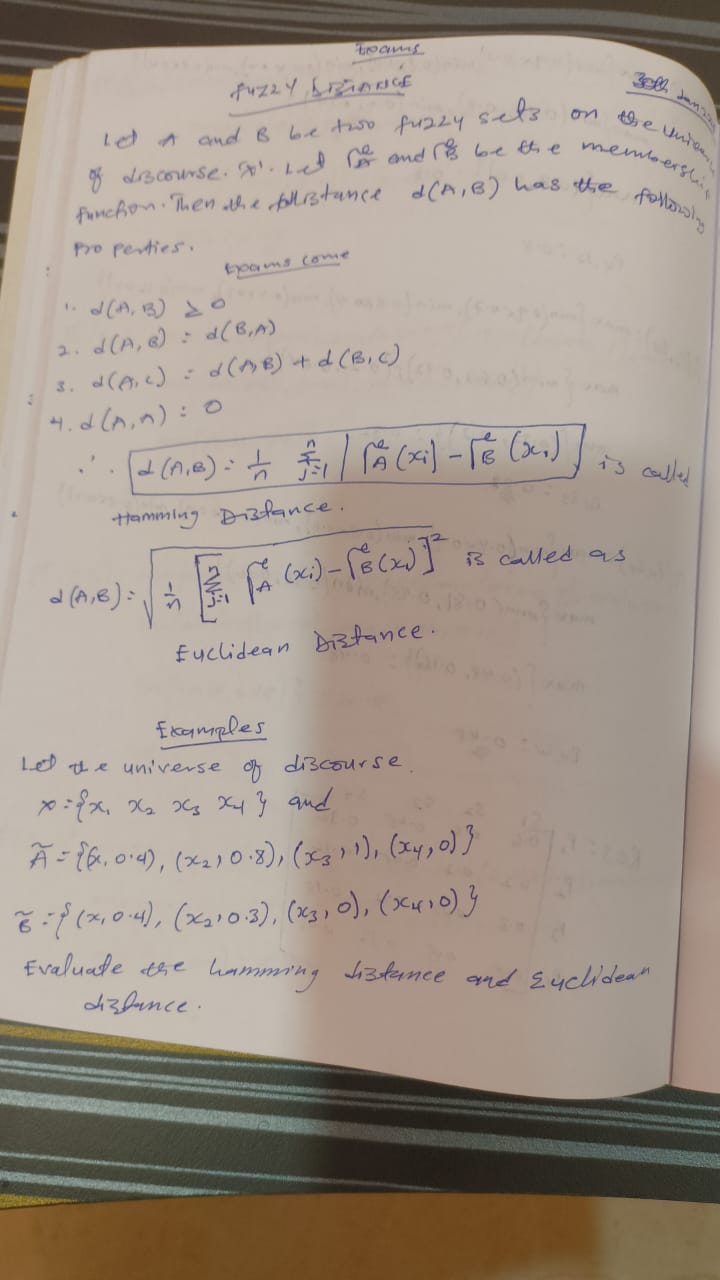 Exams
30th Jan
FUZZY DISTANCE
Let A and B be two fuzzy sets on the universe
of discourse. 'x'. Let Γ^e_A and Γ^e_B be the membership
function. Then the distance d(A,B) has the following
Properties.
Exams come
1. d(A,B) ≥ 0
2. d(A,B) = d(B,A)
3. d(A,C) = d(A,B) + d(B,C)
4. d(A,A) = 0
∴ d(A,B) = 1/n Σ^n_{j=1} | Γ^e_A (xi) - Γ^e_B (xi) | is called
Hamming Distance.
d(A,B) = √ 1/n [ Σ^n_{j=1} Γ^e_A (xi) - Γ^e_B (xi) ]^2 is called as
Euclidean Distance.
Examples
Let the universe of discourse.
x = {x1 x2 x3 x4} and
Ã = {(x, 0.4), (x2, 0.8), (x3, 1), (x4, 0)}
B̃ = {(x, 0.4), (x2, 0.3), (x3, 0), (x4, 0)}
Evaluate the hamming distance and Euclidean
distance.